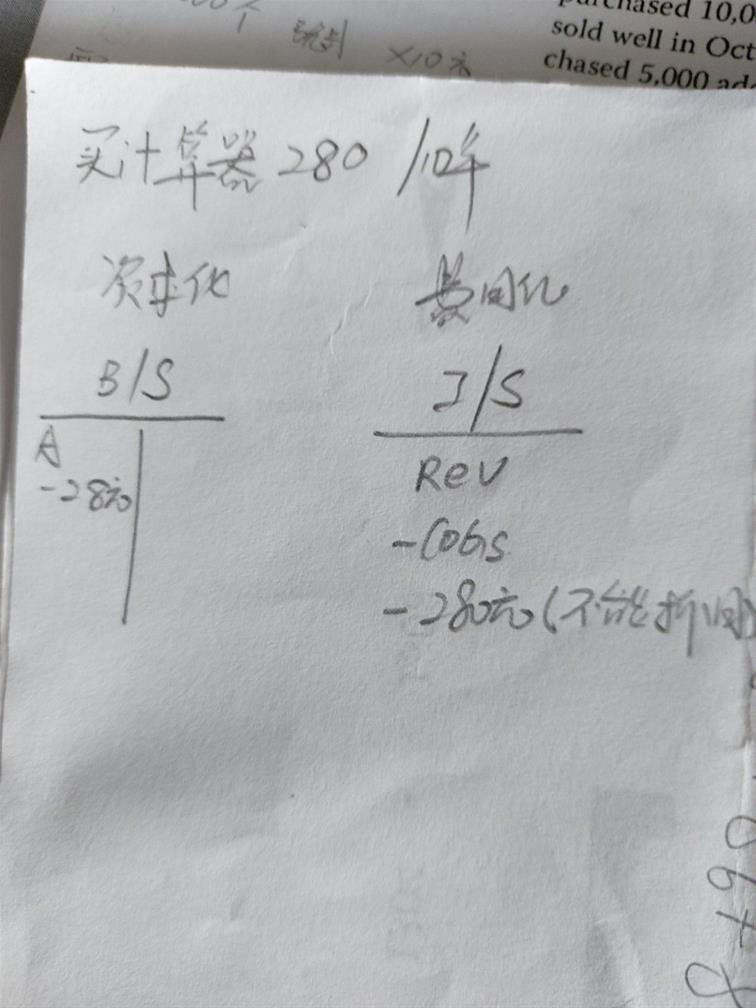 purchased 10,0
sold well in Oct
chased 5,000 add
个
×10元
买计算器 280 /10年
资本化
费用化
B/S
I/S
A
-28元
Rev
-COGS
-280元(不能折旧)